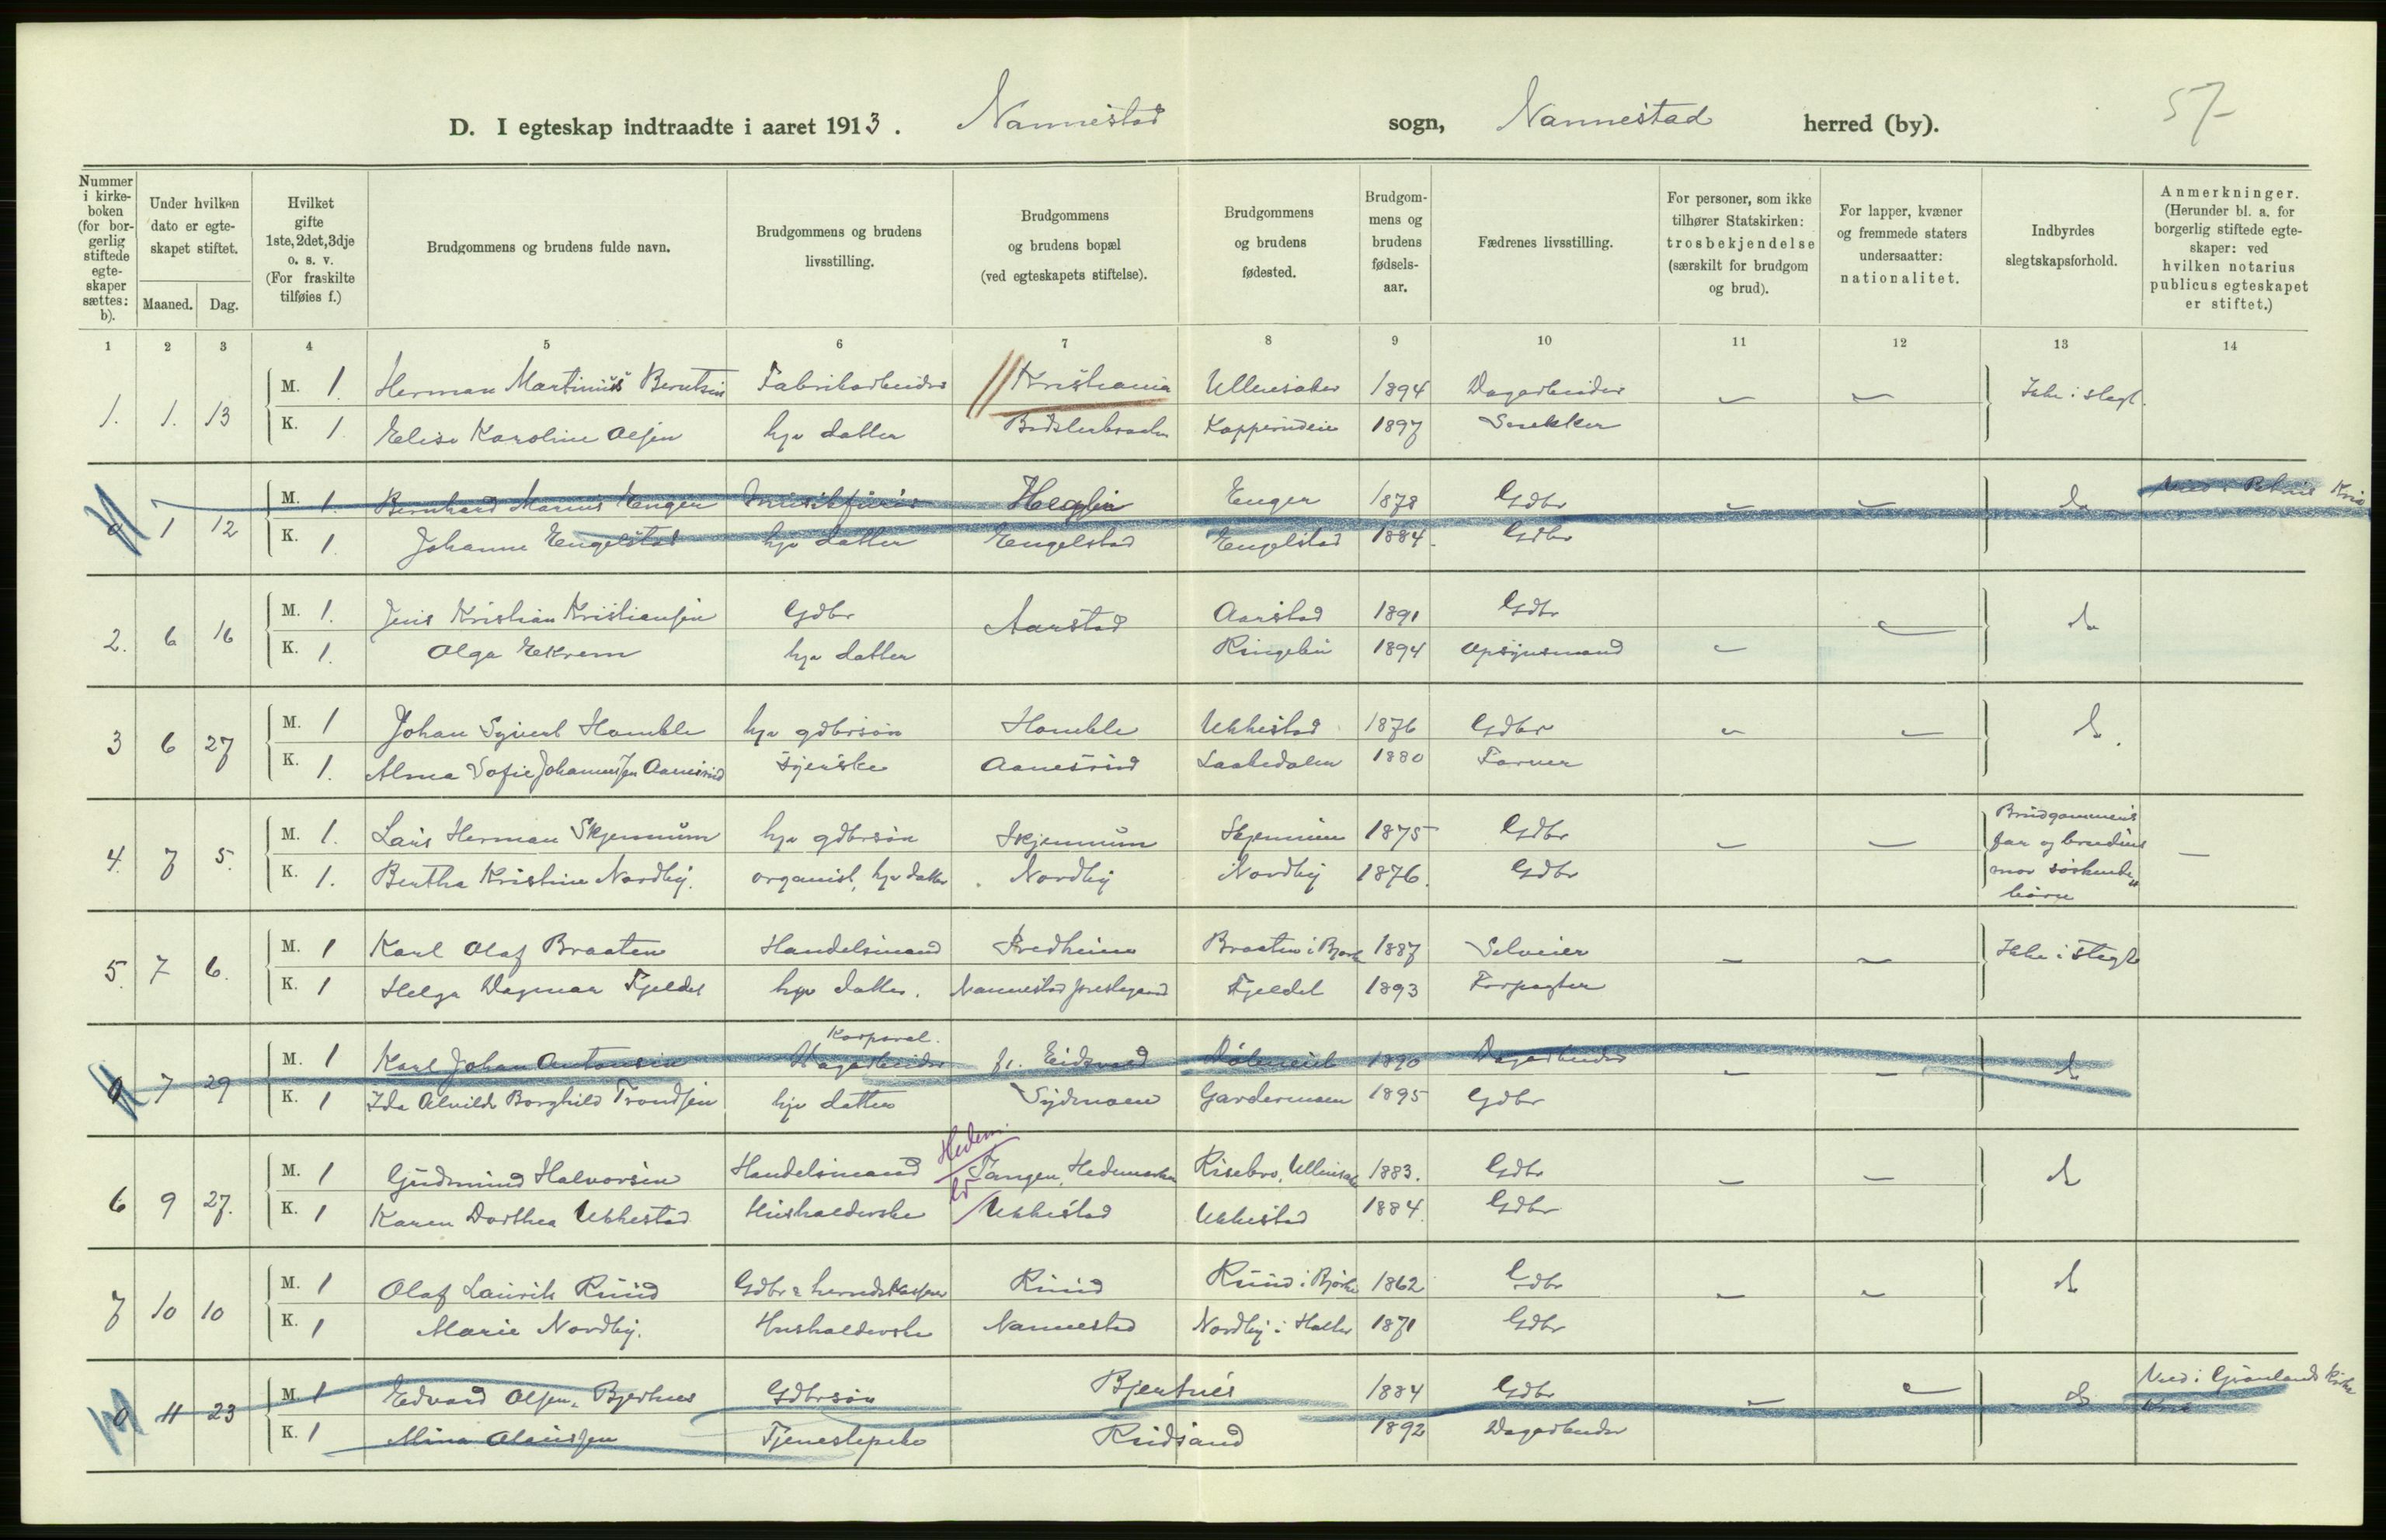 57
D. I egteskap indtraadte i aaret 1913. Nannestad sogn, Nannestad herred (by).
Nummer i kirkeboken (for borgerlig stiftede egteskaper sættes: b).
Under hvilken dato er egteskapet stiftet.
Maaned. Dag.
Hvilket gifte 1ste, 2det, 3dje o. s. v. (For fraskilte tilføies f.)
Brudgommens og brudens fulde navn.
Brudgommens og brudens livsstilling.
Brudgommens og brudens bopæl (ved egteskapets stiftelse).
Brudgommens og brudens fødested.
Brudgommens og brudens fødselsaar.
Fædrenes livsstilling.
For personer, som ikke tilhører Statskirken: trosbekjendelse (særskilt for brudgom og brud).
For lapper, kvæner og fremmede staters undersaatter: nationalitet.
Indbyrdes slegtskapsforhold.
Anmerkninger. (Herunder bl. a. for borgerlig stiftede egteskaper: ved hvilken notarius publicus egteskapet er stiftet.)
1 2 3 4 5 6 7 8 9 10 11 12 13 14
1. 1. 13 M. 1. Herman Martinius Berntsen Fabrikarbeider Kristiania Ullensaker 1894 Dagarbeider Ikke i slegt.
K. 1. Elise Karoline Olsen hje datter 1897 Snekker
0 1 12 M. 1. Bernhard Marius Enger Heglin Enger 1878 Gdbr do
K. 1. Johanne Engelstad hje datter Engelstad Engelstad 1884. Gdbr
2. 6 16 M. 1. Jens Kristian Kristiansen Gdbr Aarstad Aarstad 1891 Gdbr do
K. 1. Olga Ekrem hje datter Ringebu 1894 Opsynsmand
3 6 27 M. 1 Johan Syvert Homble hje gdbrsøn Homble Ukkestad 1876 Gdbr do.
K. 1. Alma Sofie Johannessen Aanesrud Tjeneste Aanesrud 1880 Farver
4. 7 5. M. 1. Lars Herman Skjennum hje gdbrsøn Skjennum Skjennum 1875 Gdbr Brudgommens far og brudens mor søskendebørn
K. 1. Bertha Kristine Nordby. organist, hje datter Nordby Nordby 1876. Gdbr
5. 7 6. M. 1 Karl Olaf Braaten Handelsmand Fredheim Braaten i Bjerke 1887 Selveier Ikke i slegt
K. 1 Helga Dagmar Fjeldet hje datter. Nannestad prestegaard Fjeldet 1893 Forpagter
Korporal.
0 7 29 M. 1 Karl Johan Antonsen Dagarbeider fr. Eidsvold 1890 Dagarbeider do
K. 1 Ida Alvilde Borghild Trondsen hje datter Sydmoen Gardermoen 1895 Gdbr
Hedem.
6 9 27. M. 1 Gudmund Halvorsen Handelsmand Tangen, Hedemarken Risebro, Ullensaker 1883. Gdbr do
K. 1 Karen Dorthea Ukkestad Husholderske Ukkestad Ukkestad 1884. Gdbr
7 10 10 M. 1 Olaf Laurits Ruud Gdbr & herredskasserer Ruud Ruud i Bjerke 1862 Gdbr do
K. 1 Marie Nordby. Husholderske Nannestad Nordby i Holter 1871 Gdbr
0 11 23 M. 1 Edvard Olsen Bjertnes Gdbrsøn Bjertnes 1884 Gdbr do Viet i Grønlands Kirke Kra
K. 1 Mina Olaussen Tjenestepike Rudsand 1892 Dagarbeider